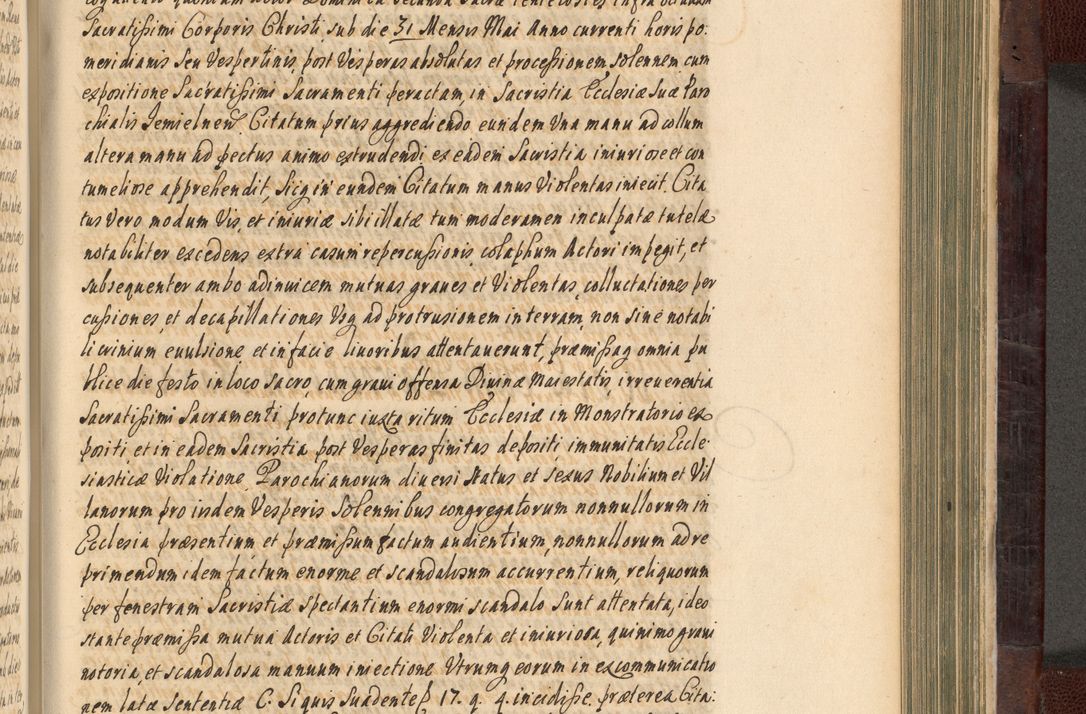 Sacratissimi Corporis Christi sub die 31 Mensis Mai Anno currenti horis po:
meridianis seu Vespertinis, post Vesperas absolutas et processionem solennem cum
expositione Sacratissimi Sacramenti peractam, in Sacristia Ecclesiæ suæ Paro
chialis Jemielnen. Citatum prius aggrediendo eundem Una manu ad collum
altera manu ad pectus animo extrudendi ex eadem Sacristia iniuriose et con
tumeliose apprehendit, sicq in eundem Citatum manus Violentas iniecit. Cita
tus Vero modum Vis, et iniuriæ sibi illatæ tum moderamen inculpatæ tutelæ
notabiliter excedens, extra casum repercussionis, colaphum Actori impegit, et
subsequenter ambo adinuicem mutuas graues et Violentas, colluctationes per
cussiones, et decapillationes Usq ad protrusionem in terram, non sine notabi
li crinium euulsione, et in facie liuoribus attentauerunt, præmissaq omnia pu
blice die festo in loco sacro cum graui offensa Diuinæ Maiestatis, irreuerentia
Sacratissimi Sacramenti protunc iuxta ritum Ecclesiæ in Monstratorio ex
positi et in eadem Sacristia post Vesperas finitas depositi immunitatis Eccle-
siasticæ Violatione, Parochianorum diuersi status et sexus Nobilium et Vil
lanorum pro iisdem Vesperis Solennibus congregatorum nonnullorum in
Ecclesia præsentium et præmissum factum audientium, nonnullorum ad re
primendum idem factum enorme et scandalosum accurrentium, reliquorum
per fenestram Sacristiæ spectantium enormi scandalo sunt attentata, ideo
stante præmissa mutua Actoris et Citati Violenta et iniuriosa, quinimo graui
notoria, et scandalosa manuum iniectione Utrumq eorum in excommunicatio
nem latæ sententiæ C. Si quis Suadente 17. q. 4. incidisse. præterea Cita: